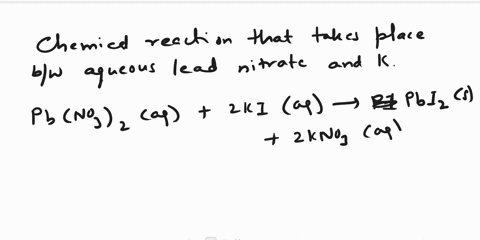 Chemical reaction that takes place
b/w aqueous lead nitrate and K.
Pb(NO3)2 (aq) + 2KI (aq) → PbI2(s)
+ 2KNO3 (aq)